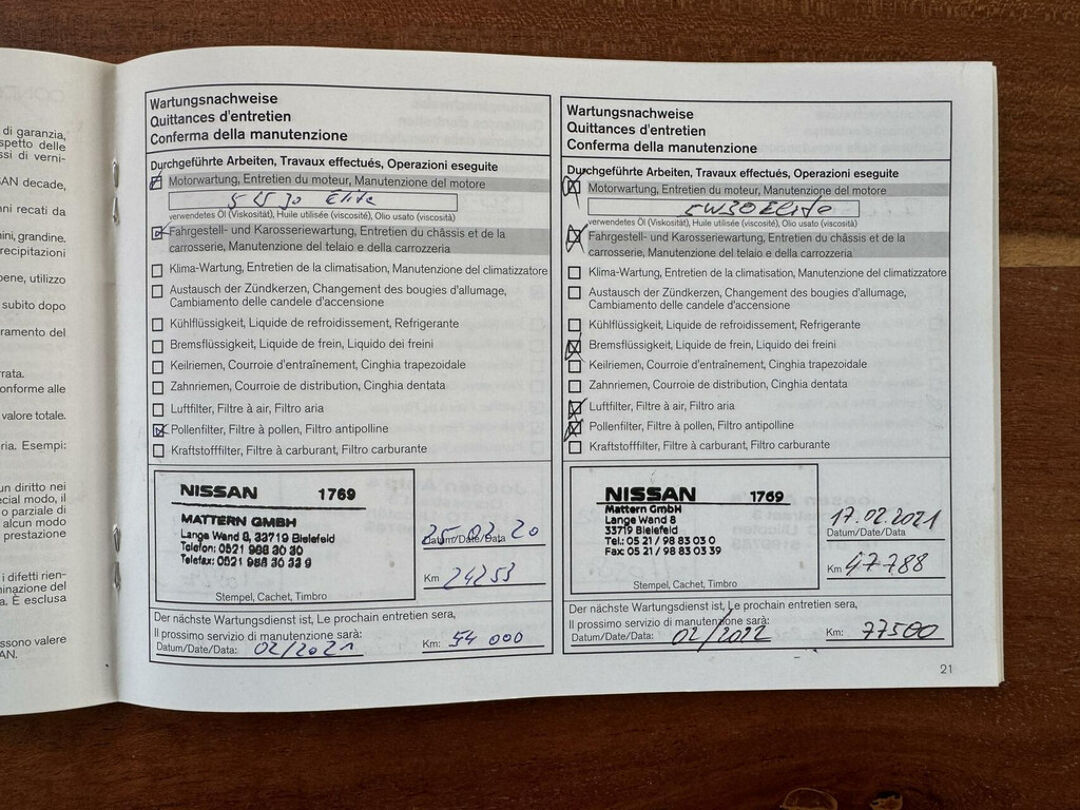 di garanzia,
spetto delle
ssi di verni-
SAN decade,
nni recati da
nini, grandine.
recipitazioni
bene, utilizzo
subito dopo
ramento del
rata.
onforme alle
valore totale.
ria. Esempi:
un diritto nei
ecial modo, il
o parziale di
alcun modo
prestazione
i difetti rien-
minazione del
a. È esclusa
ssono valere
AN.
Wartungsnachweise
Quittances d'entretien
Conferma della manutenzione
Durchgeführte Arbeiten, Travaux effectués, Operazioni eseguite
Motorwartung, Entretien du moteur, Manutenzione del motore
30 Elite
verwendetes Öl (Viskosität), Huile utilisée (viscosité), Olio usato (viscosità)
Fahrgestell- und Karosseriewartung, Entretien du châssis et de la
carrosserie, Manutenzione del telaio e della carrozzeria
Klima-Wartung, Entretien de la climatisation, Manutenzione del climatizzatore
Austausch der Zündkerzen, Changement des bougies d'allumage,
Cambiamento delle candele d'accensione
Kühlflüssigkeit, Liquide de refroidissement, Refrigerante
Bremsflüssigkeit, Liquide de frein, Liquido dei freini
Keilriemen, Courroie d'entraînement, Cinghia trapezoidale
Zahnriemen, Courroie de distribution, Cinghia dentata
Luftfilter, Filtre à air, Filtro aria
Pollenfilter, Filtre à pollen, Filtro antipolline
Kraftstofffilter, Filtre à carburant, Filtro carburante
NISSAN 1769
MATTERN GMBH
Lange Wand 8, 33719 Bielefeld
Telefon: 0521 988 30 30
Telefax: 0521 988 30 33 9
Stempel, Cachet, Timbro
25.02.20
Datum/Date/Data
Km 24253
Der nächste Wartungsdienst ist, Le prochain entretien sera,
Il prossimo servizio di manutenzione sarà:
Datum/Date/Data: 02/2021 Km: 54 000
Wartungsnachweise
Quittances d'entretien
Conferma della manutenzione
Durchgeführte Arbeiten, Travaux effectués, Operazioni eseguite
Motorwartung, Entretien du moteur, Manutenzione del motore
5W30 Elite
verwendetes Öl (Viskosität), Huile utilisée (viscosité), Olio usato (viscosità)
Fahrgestell- und Karosseriewartung, Entretien du châssis et de la
carrosserie, Manutenzione del telaio e della carrozzeria
Klima-Wartung, Entretien de la climatisation, Manutenzione del climatizzatore
Austausch der Zündkerzen, Changement des bougies d'allumage,
Cambiamento delle candele d'accensione
Kühlflüssigkeit, Liquide de refroidissement, Refrigerante
Bremsflüssigkeit, Liquide de frein, Liquido dei freini
Keilriemen, Courroie d'entraînement, Cinghia trapezoidale
Zahnriemen, Courroie de distribution, Cinghia dentata
Luftfilter, Filtre à air, Filtro aria
Pollenfilter, Filtre à pollen, Filtro antipolline
Kraftstofffilter, Filtre à carburant, Filtro carburante
NISSAN 1769
Mattern GmbH
Lange Wand 8
33719 Bielefeld
Tel.: 05 21 / 98 83 03 0
Fax: 05 21 / 98 83 03 39
Stempel, Cachet, Timbro
17.02.2021
Datum/Date/Data
Km 47788
Der nächste Wartungsdienst ist, Le prochain entretien sera,
Il prossimo servizio di manutenzione sarà:
Datum/Date/Data: 02/2022 Km: 77500
21